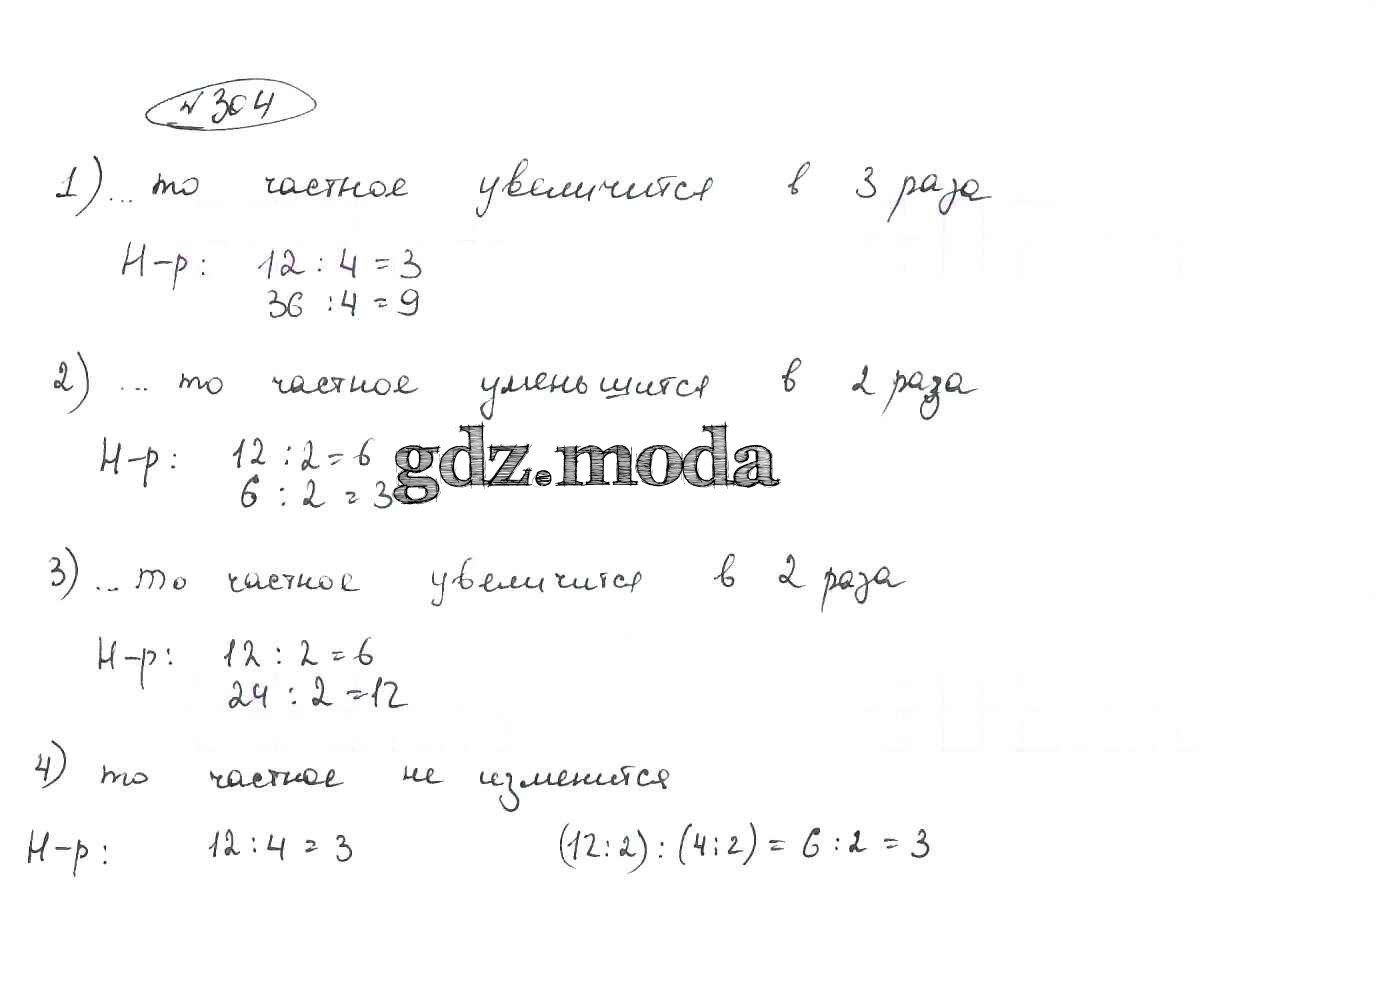 №304
1) ... то частное увеличится в 3 раза
Н-р: 12 : 4 = 3
36 : 4 = 9
2) ... то частное уменьшится в 2 раза
Н-р: 12 : 2 = 6
gdz.moda
6 : 2 = 3
3) ... то частное увеличится в 2 раза
Н-р: 12 : 2 = 6
24 : 2 = 12
4) то частное не изменится
Н-р: 12 : 4 = 3 (12:2) : (4:2) = 6 : 2 = 3